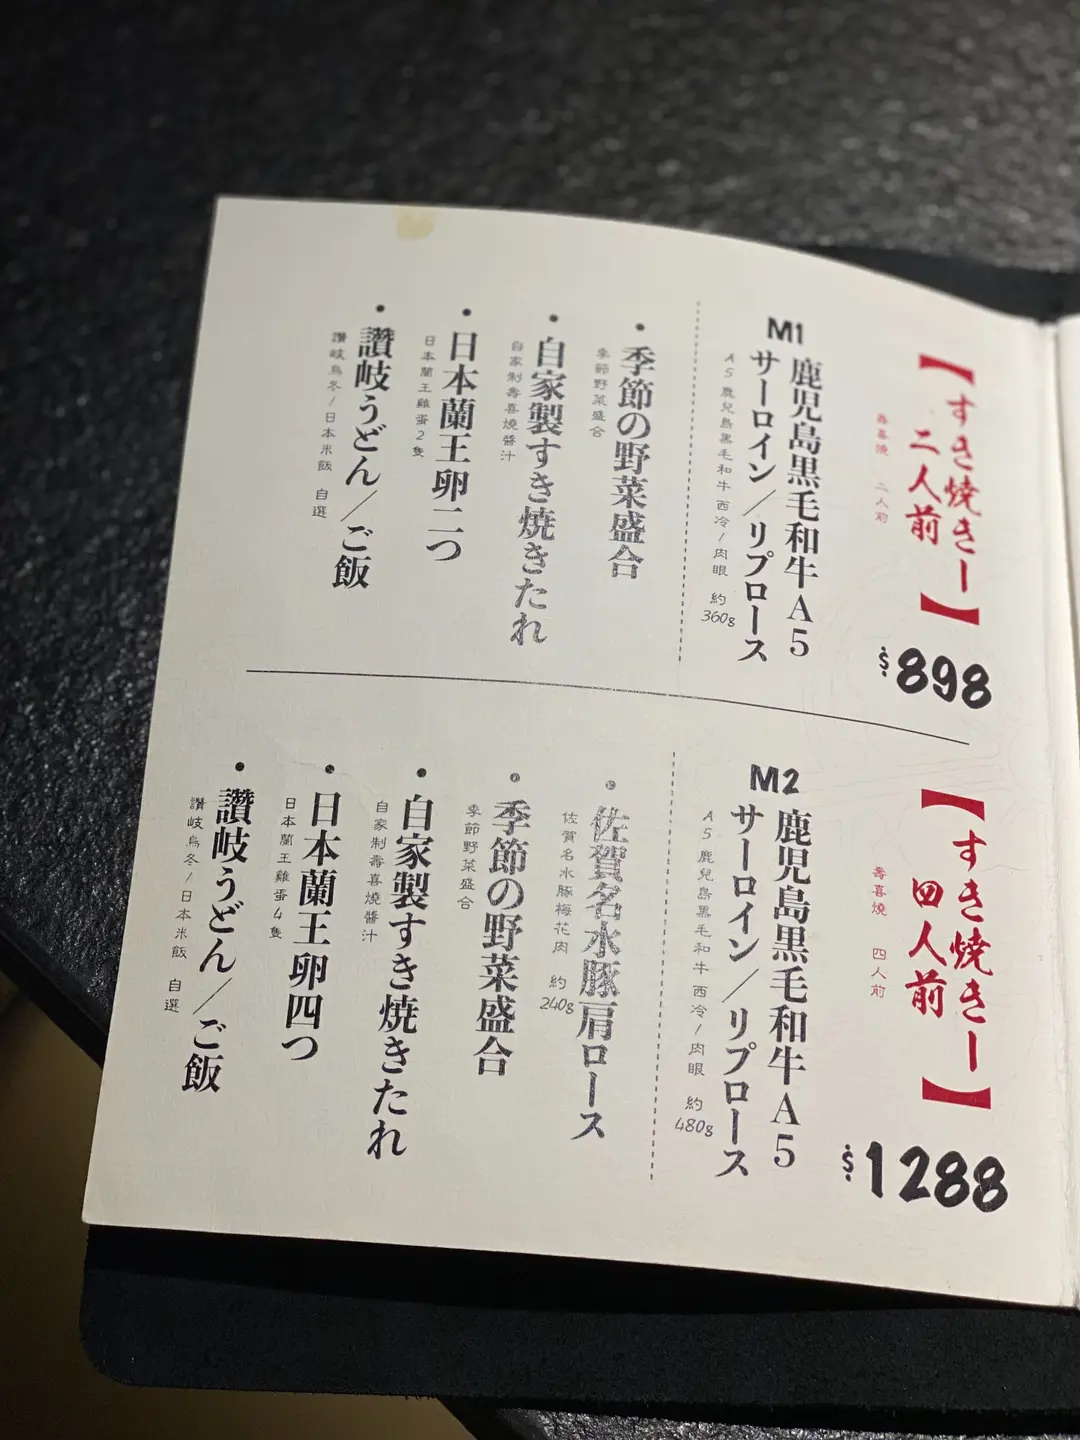 【すき焼きー
二人前】
壽喜燒 二人前
$898
M1
鹿児島黒毛和牛A5
サーロイン/リブロース
A5鹿兒島黑毛和牛西冷/肉眼 約360g
・季節の野菜盛合
季節野菜盛合
・自家製すき焼きたれ
自家制壽喜燒醬汁
・日本蘭王卵二つ
日本蘭王雞蛋2隻
・讚岐うどん/ご飯
讚岐烏冬/日本米飯 自選
【すき焼きー
四人前】
壽喜燒 四人前
$1288
M2
鹿児島黒毛和牛A5
サーロイン/リブロース
A5鹿兒島黑毛和牛西冷/肉眼 約480g
・佐賀名水豚肩ロース
佐賀名水豚梅花肉 約240g
・季節の野菜盛合
季節野菜盛合
・自家製すき焼きたれ
自家制壽喜燒醬汁
・日本蘭王卵四つ
日本蘭王雞蛋4隻
・讚岐うどん/ご飯
讚岐烏冬/日本米飯 自選